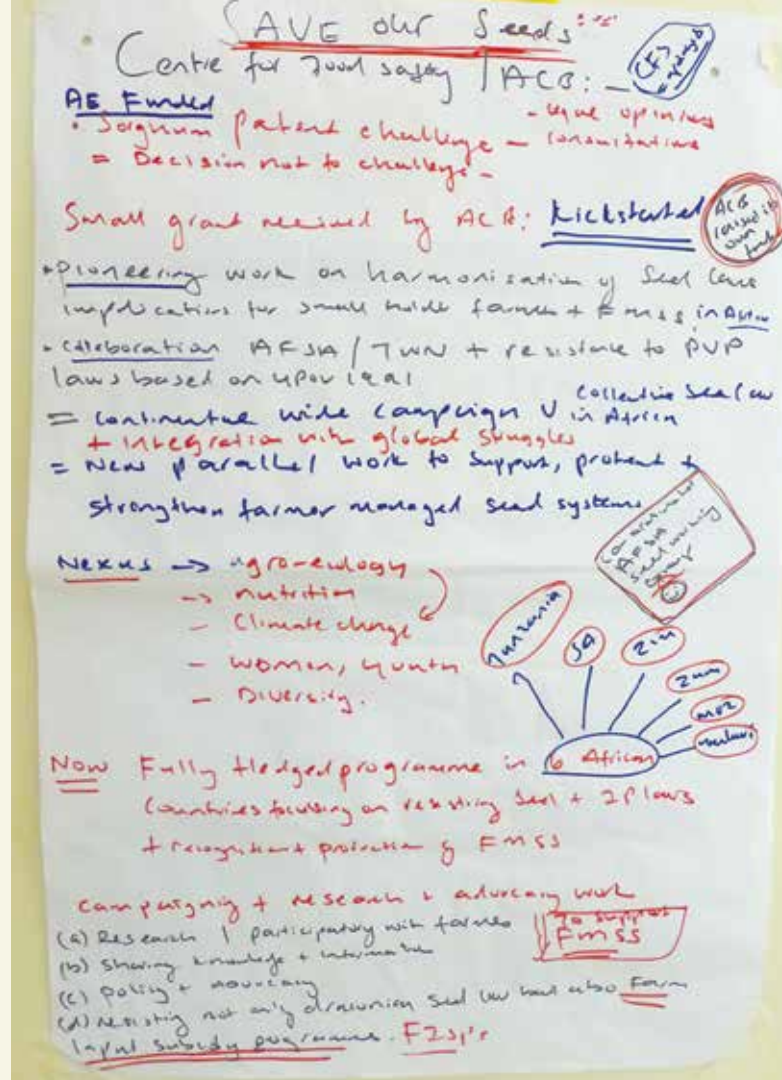 SAVE our Seeds
Centre for Food safety / ACB: -
AE Funded
• Sorghum patent challenge - legal opinions
consultations
= Decision not to challenge -
Small grant received by ACB: Kickstarted
ACB raised its own funds
• Pioneering work on harmonisation of Seed laws
implications for small holder farmers + FMSS in Africa
• Collaboration AFSA / TWN + resistance to PVP
laws based on UPOV 1991
= continental wide campaign v Collective Seed law in Africa
+ Integration with global struggles
= New parallel work to support, protect +
strengthen farmer managed seed systems
Co-ordinator
AFSA
Seed working
group
Nexus → agro-ecology
→ nutrition
- Climate change
- women, youth
- Diversity.
Tanzania
SA
Zim
Zam
Moz
Malawi
Now Fully fledged programme in 6 African
Countries focusing on resisting seed + IP laws
+ recognition + protection of FMSS
Campaigning + research + advocacy work
To support
FMSS
(a) Research / participatory with farmers
(b) Sharing knowledge + information
(c) Policy + advocacy
(d) resisting not only draconian seed law but also Farm
Input subsidy programmes. FISP's